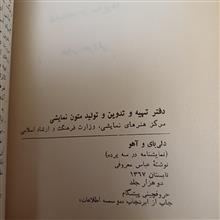 دفتر تهیه و تدوین و تولید متون نمایشی
مرکز هنرهای نمایشی، وزارت فرهنگ و ارشاد اسلامی
دلی‌بای و آهو
(نمایشنامه در سه پرده)
نوشتهٔ عباس معروفی
تابستان ۱۳۶۷
دو هزار جلد
حروفچینی پیشگام
چاپ از ایرانچاپ (موسسه اطلاعات)